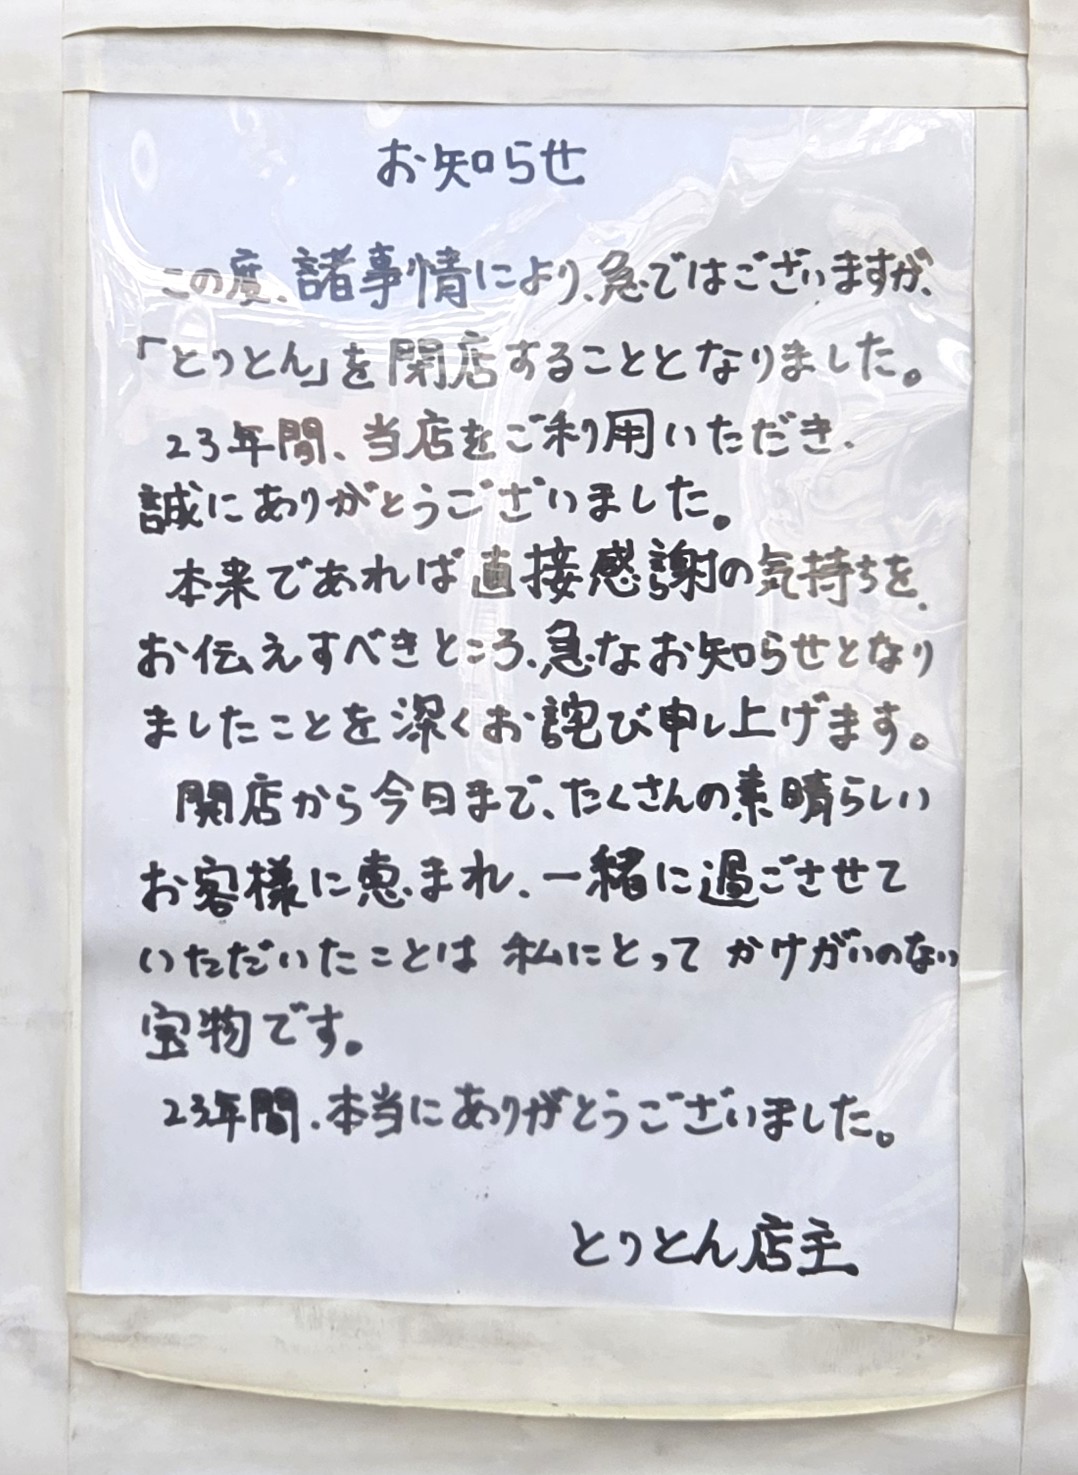 お知らせ
この度、諸事情により、急ではございますが、
「とりとん」を閉店することとなりました。
23年間、当店をご利用いただき、
誠にありがとうございました。
本来であれば直接感謝の気持ちを、
お伝えすべきところ、急なお知らせとなり
ましたことを深くお詫び申し上げます。
開店から今日まで、たくさんの素晴らしい
お客様に恵まれ、一緒に過ごさせて
いただいたことは私にとってかけがいのない
宝物です。
23年間、本当にありがとうございました。
とりとん店主